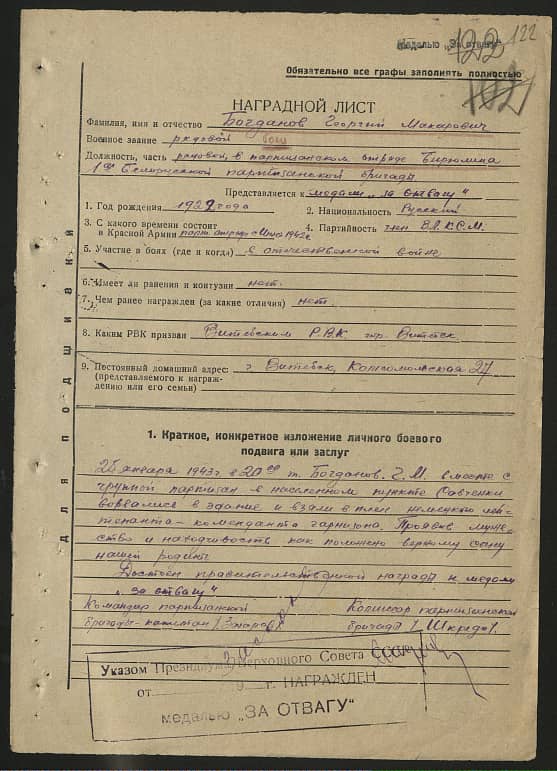 Медалью „За отвагу"
122
122
102
Обязательно все графы заполнять полностью
НАГРАДНОЙ ЛИСТ
Фамилия, имя и отчество Богданов Георгий Макарович
Военное звание рядовой боец
Должность, часть рядовой, в партизанском отряде Бирюлина
1ой Белорусской партизанской бригады
Представляется к медали „За отвагу"
1. Год рождения 1927 года 2. Национальность Русский
3. С какого времени состоит в Красной Армии парт. отряд с 1942г. 4. Партийность член В.Л.К.С.М.
5. Участие в боях (где и когда) в отечественной войне
6. Имеет ли ранения и контузии нет.
7. Чем ранее награжден (за какие отличия) нет.
8. Каким РВК призван Витебским Р.В.К. гор. Витебск
9. Постоянный домашний адрес: г. Витебск, Комсомольская 27
(представляемого к награж-
дению или его семьи)
Для подшивки
1. Краткое, конкретное изложение личного боевого
подвига или заслуг
января 1943г. в 20 т. Богданов. Г.М. вместе с
группой партизан в населенном пункте Савченки
ворвались в здание и взяли в плен немецкого лей-
тенанта - коменданта гарнизона. Проявив муже-
ство и находчивость как положено верному сыну
нашей родины.
Достоен правительственной награды к медали
„за отвагу"
Командир партизанской Комиссар партизанской
бригады - капитан /Захаров/ бригады / Шкреда/.
Указом Президиума Верховного Совета
от г. НАГРАЖДЕН
медалью „ЗА ОТВАГУ"